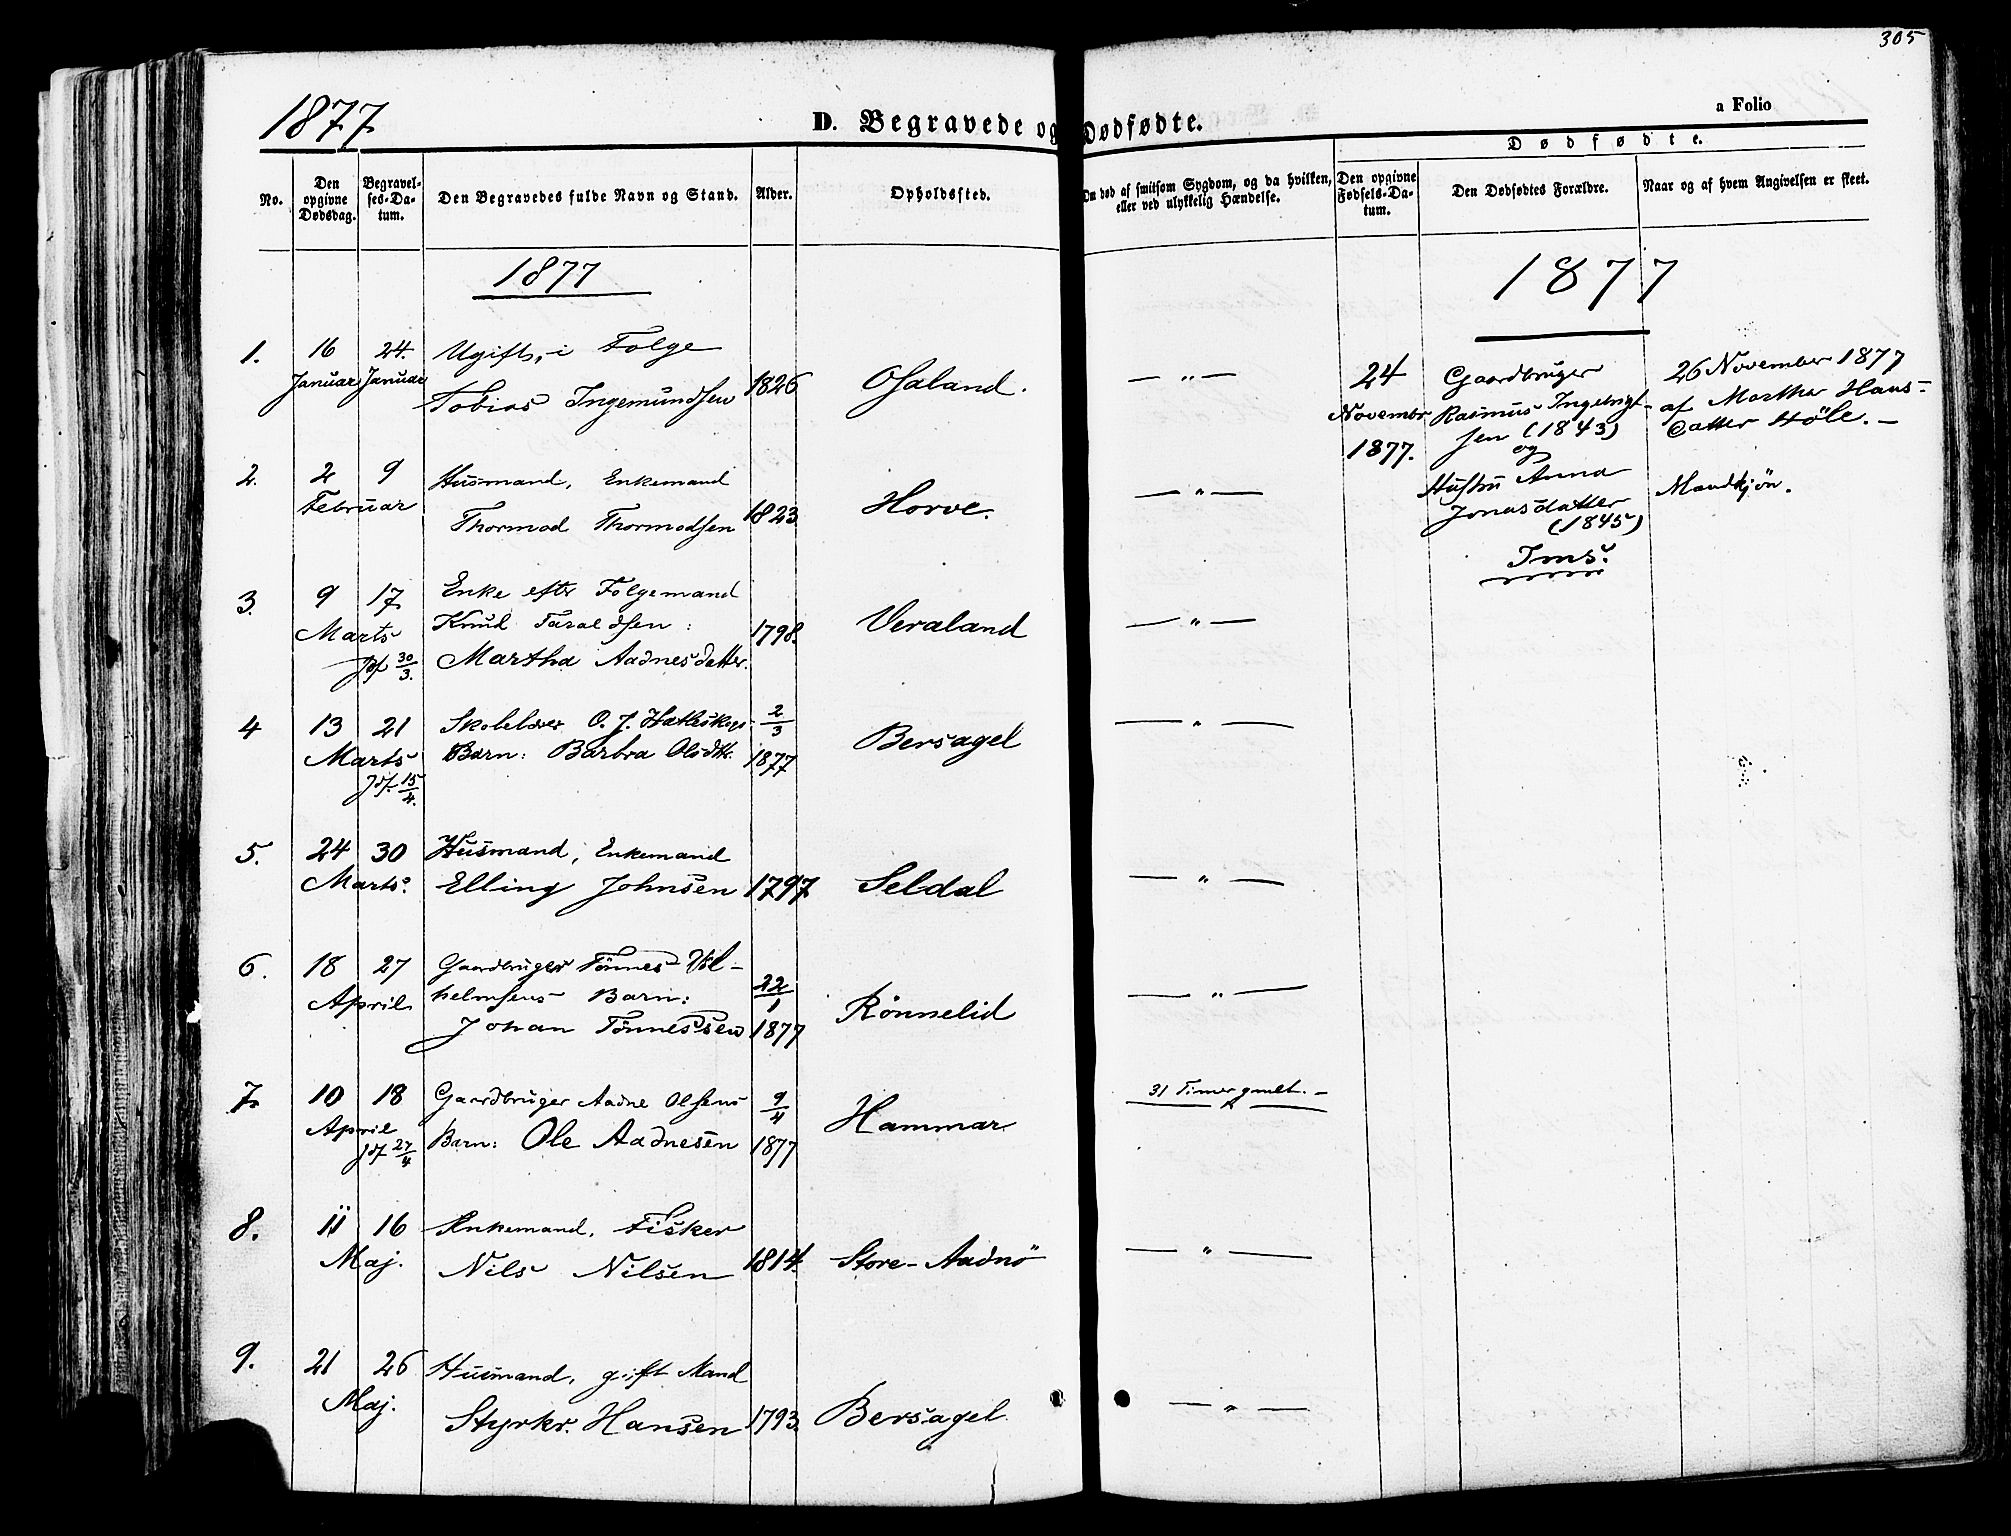 305
1877
D. Begravede og Dødfødte.
a Folio
Dødfødte.
No.
Den opgivne Dødsdag.
Begravelses-Datum.
Den Begravedes fulde Navn og Stand.
Alder.
Opholdssted.
Om død af smitsom Sygdom, og da hvilken, eller ved ulykkelig Hændelse.
Den opgivne Fødsels-Datum.
Den Dødfødtes Forældre.
Naar og af hvem Angivelsen er skeet.
1877
1877
1. 16 24. Ugift, i Følge
Januar Januar Tobias Ingemundsen 1826 Osaland. — „ —
2. 2 9 Husmand, Enkemand
Februar Thormod Thormodsen 1823 Horve. — „ —
3. 9 17 Enke efter Følgemand
Marts Knud Taraldsen: 1798. Veraland — „ —
Jdf 30/3. Martha Aadnesdatter.
4 13 21 Skolelærer O. J. 2/3
Marts Barn: Barbra Olsdtr. 1877 Bersagel — „ —
Jdf. 15/4.
5. 24 30 Husmand, Enkemand
Marts. Elling Johnsen 1797 Seldal — „ —
6. 18 27 Gaardbruger Tönnes Vil-
April helmsens Barn: 22/1 Rönnelid — „ —
Johan Tönnessen 1877
7. 10 18 Gaardbruger Aadne Olsens 9/4 Hammar 31 Timer gmlt. —
April Jdf 27/4 Barn: Ole Aadnesen 1877
8. 11 16 Enkemand, Fisker
Maj. Nils Nilsen 1814. Store-Aadnö — „ —
9. 21 26 Husmand, gift Mand
Maj. Styrkr. Hansen 1793. Bersagel — „ —
24
Novembr
1877.
Gaardbruger
Rasmus Ingebrigt-
sen (1843)
og
Hustru Anna
Jonasdatter
(1845)
Ims.
26 November 1877
af Martha Hans-
datter Höle. —
Mandkjön.